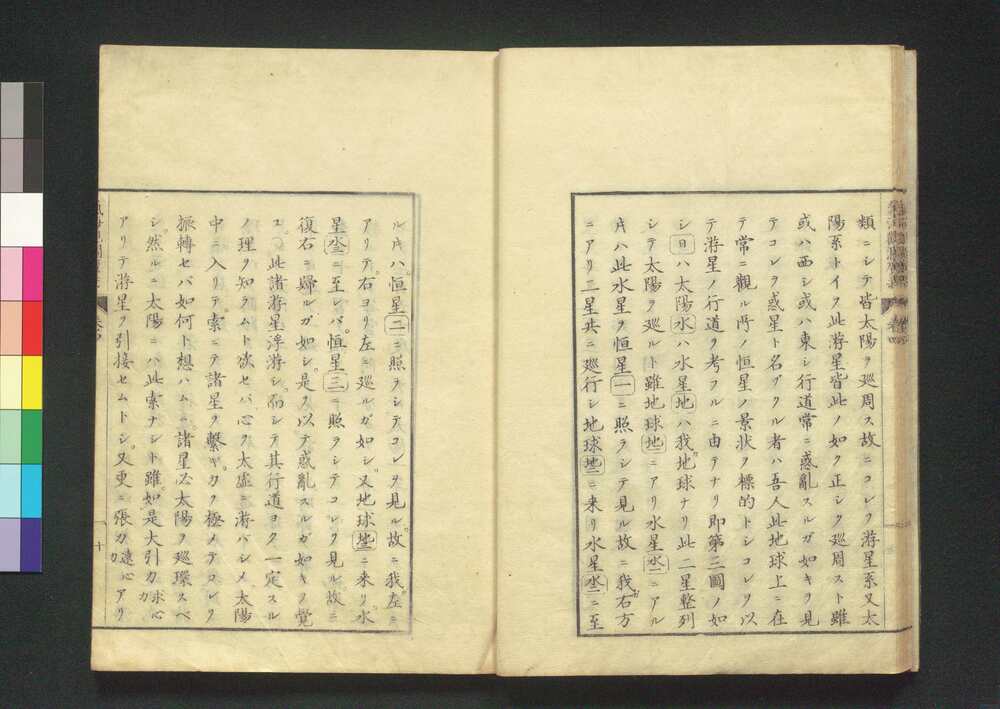 類ニシテ皆太陽ヲ巡周ス故ニコレヲ游星系又太
陽系トイス此游星皆此ノ如ク正シク巡周スト雖
或ハ西シ或ハ東シ行道常ニ惑乱スルガ如キヲ見
テコレヲ惑星ト名ヅクル者ハ吾人此地球上ニ在
テ常ニ觀ル所ノ恒星ノ景状ヲ標的トシコレヲ以
テ游星ノ行道ヲ考フルニ由テナリ即第三圖ノ如
シ日ハ太陽水ハ水星地ハ我地球ナリ此二星整列
シテ太陽ヲ巡ルト雖地球地一ニアリ水星水一ニアル
片ハ此水星ヲ恒星一ニ照ラシテ見ル故ニ我右方
ニアリ二星共ニ巡行シ地球地二ニ来リ水星水二ニ至
ル片ハ恒星二ニ照ラシテコレヲ見ル故ニ我左ニ
アリテ右ヨリ左ニ巡ルガ如シ又地球地三ニ来リ水
星水三ニ至レバ恒星三ニ照ラシテコレヲ見ル故ニ
復右ニ歸ルガ如シ是ヲ以テ惑亂スルガ如キヲ覺
ユ此諸游星浮游シ而シテ其行道ヨク一定スル
ノ理ヲ知ラムト欲セバ心ヲ太虚ニ游バシメ太陽
中ニ入リテ索ニテ諸星ヲ繋ギ力ヲ極メテコレヲ
振轉セバ如何ト想ハムニ諸星必太陽ヲ巡環スベ
シ然ルニ太陽ニハ此索ナシト雖如是大引力求心力
アリテ游星ヲ引接セムトシ又更ニ張力遠心力アリ
十